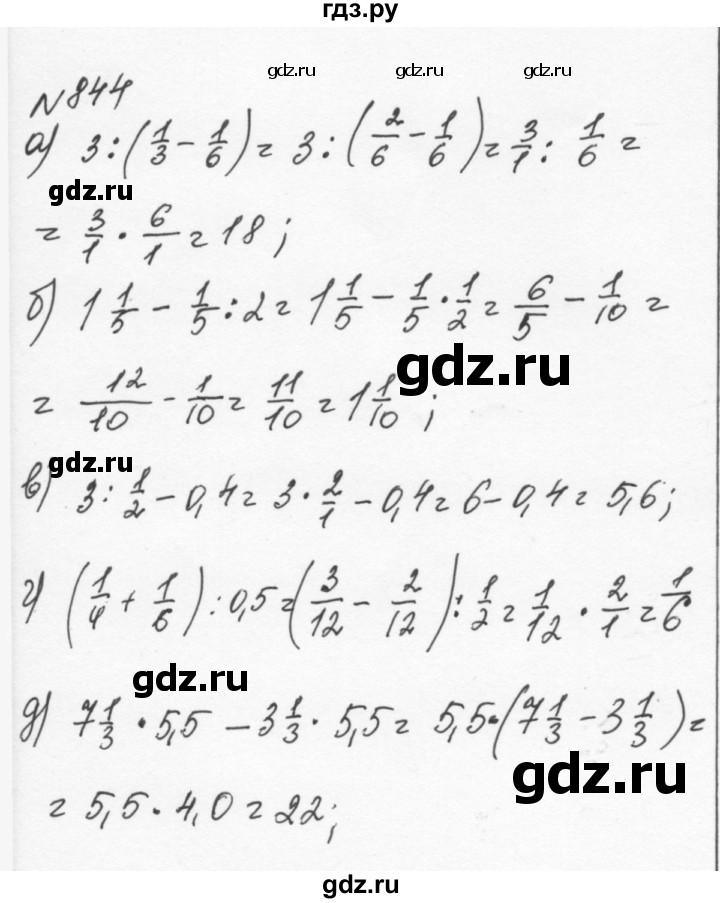 гдз.ру
gdz.ru gdz.ru
№844
а) 3:(1/3 - 1/6) = 3:(2/6 - 1/6) = 3/1 : 1/6 =
gdz.ru
= 3/1 · 6/1 = 18;
б) 1 1/5 - 1/5 : 2 = 1 1/5 - 1/5 · 1/2 = 6/5 - 1/10 =
gdz.ru
= 12/10 - 1/10 = 11/10 = 1 1/10;
gdz.ru
в) 3 : 1/2 - 0,4 = 3 · 2/1 - 0,4 = 6 - 0,4 = 5,6;
г) (1/4 + 1/6) : 0,5 = (3/12 - 2/12) : 1/2 = 1/12 · 2/1 = 1/6
gdz.ru
д) 7 1/3 · 5,5 - 3 1/3 · 5,5 = 5,5 · (7 1/3 - 3 1/3) =
gdz.ru
= 5,5 · 4,0 = 22;
gdz.ru